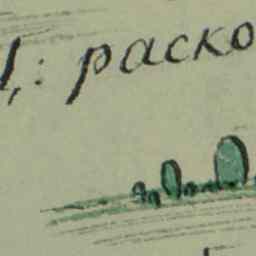 : раско